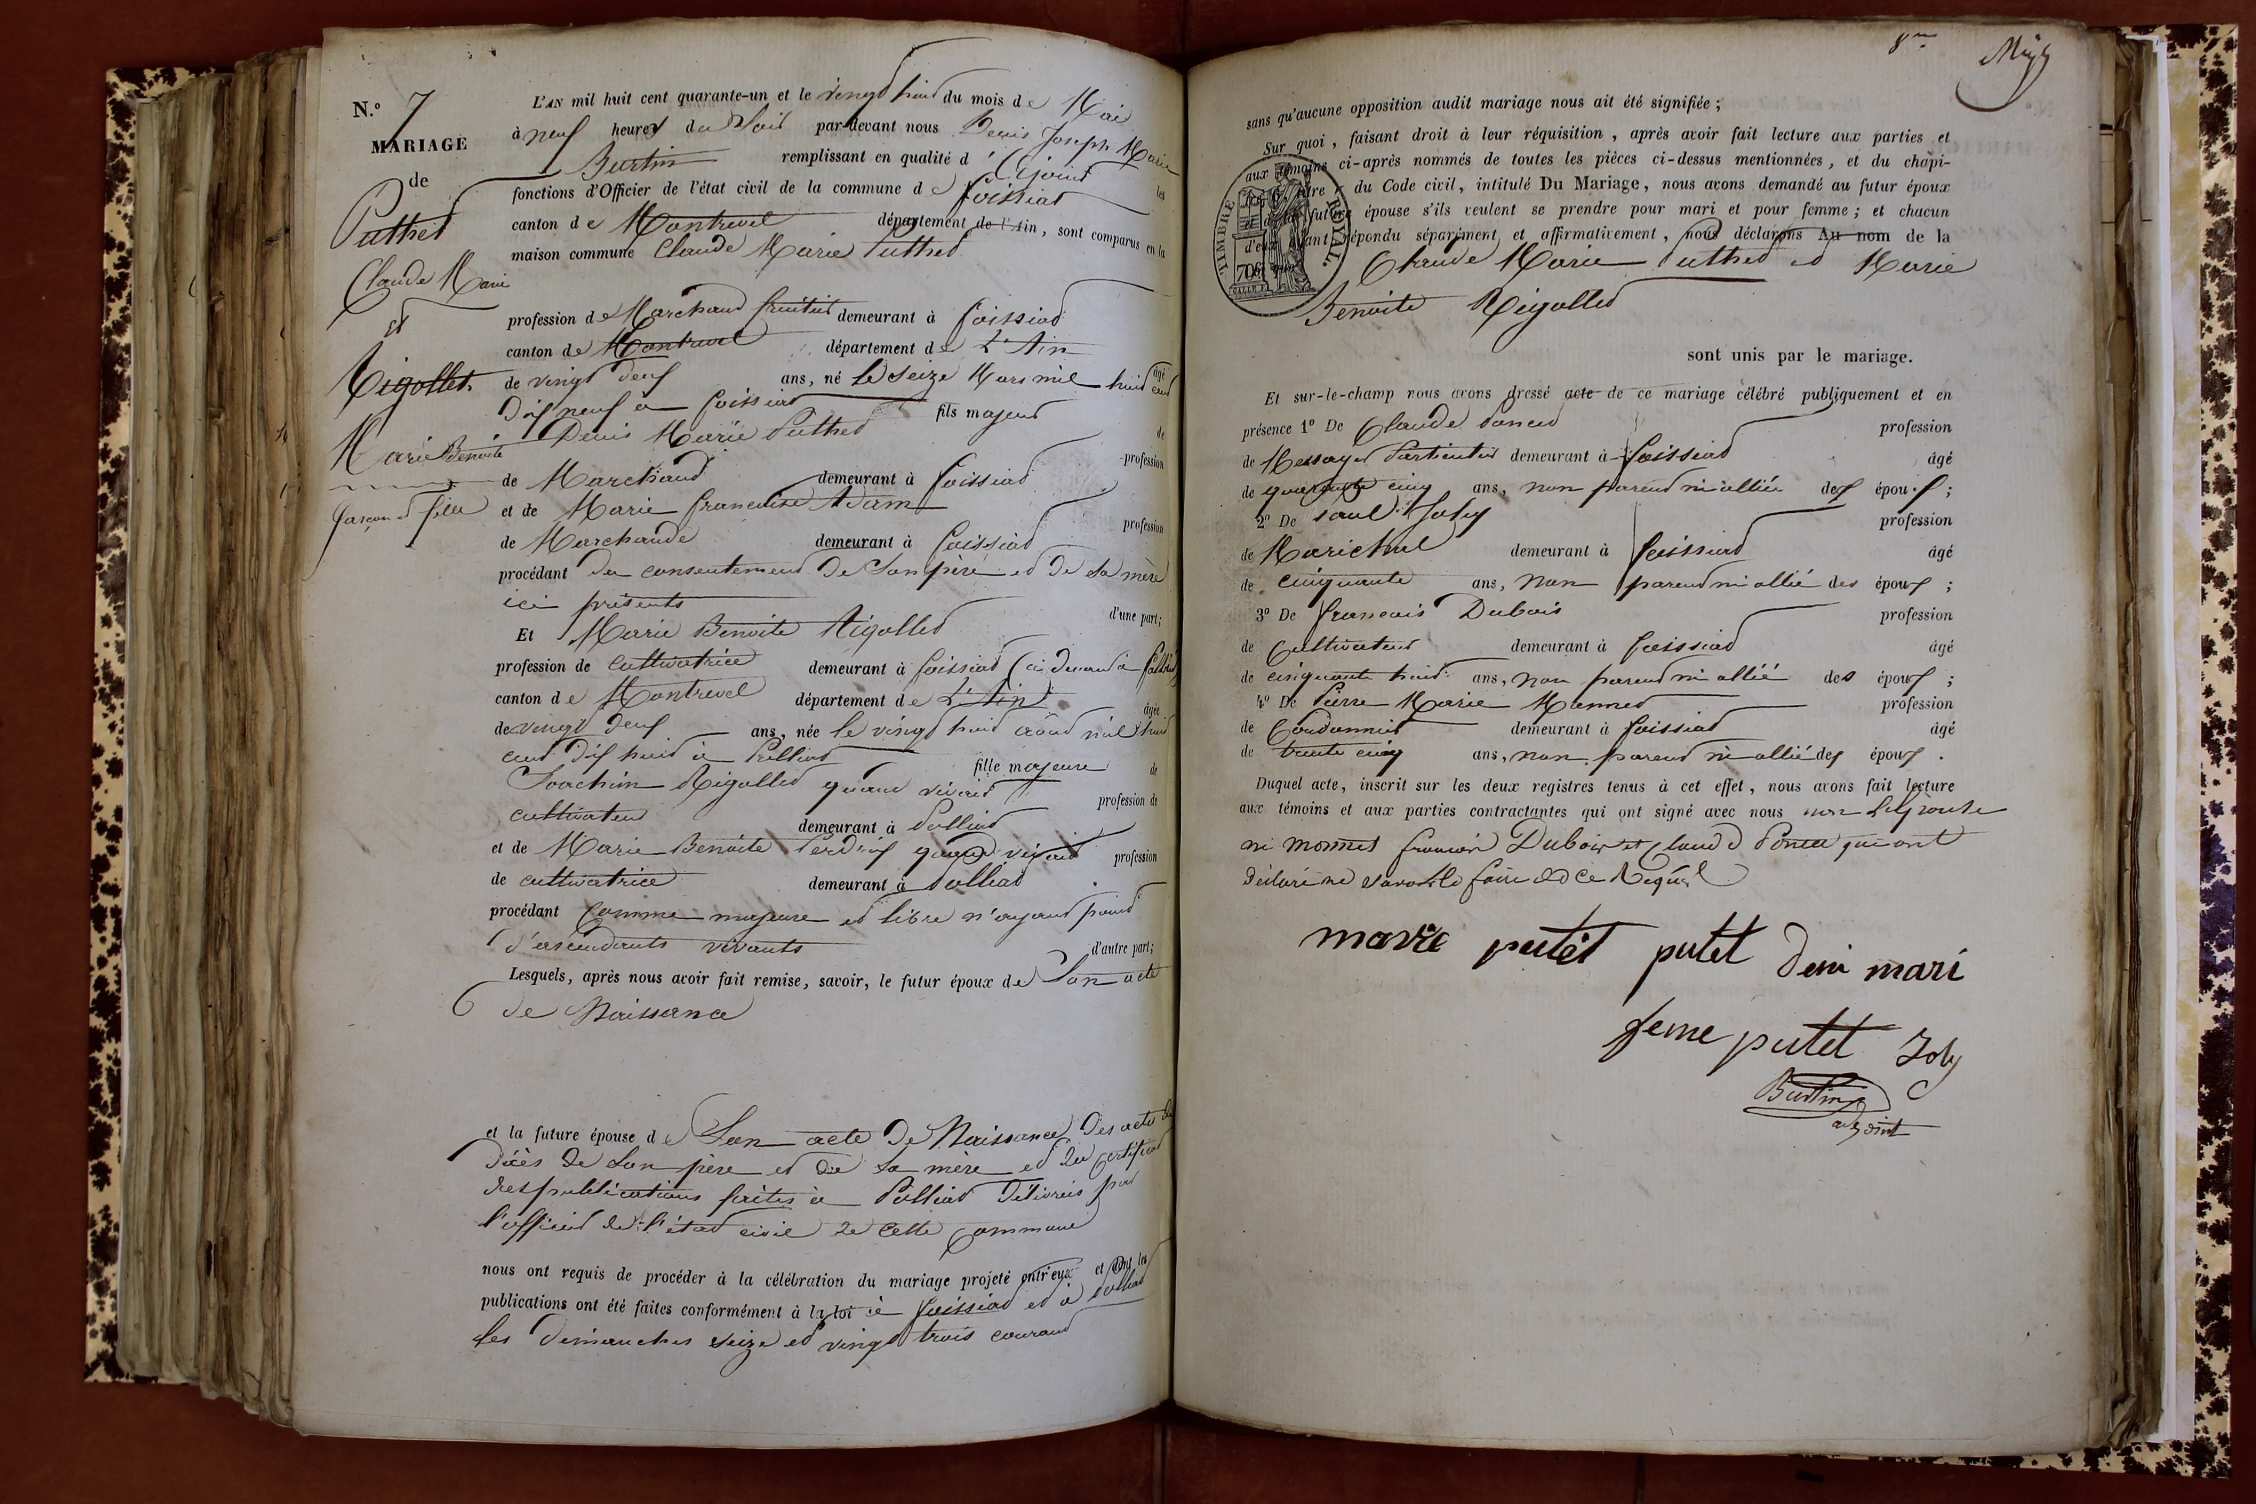 N.º 7
MARIAGE
de
Puthet
Claude Marie
et
Rigollet
Marie Benoite
garçon et fille
L'AN mil huit cent quarante-un et le vingt huit du mois de Mai
à neuf heures du Soir par-devant nous Denis Joseph Marie
Burtin remplissant en qualité d'Adjoint les
fonctions d'Officier de l'état civil de la commune de foissiat
canton de Montrevel département de l'Ain, sont comparus en la
maison commune Claude Marie Puthet
profession de Marchand fruitier demeurant à foissiat
canton de Montrevel département de L'Ain âgé
de vingt deux ans, né le seize Mars mil huit cent
dix neuf à foissiat fils majeur de
Denis Marie Puthet profession
de Marchand demeurant à foissiat
et de Marie françoise Adam profession
de Marchande demeurant à foissiat
procédant du consentement de Son père et de Sa mère
ici présents d'une part;
Et Marie Benoite Rigollet
profession de cultivatrice demeurant à foissiat
canton de Montrevel département de L'Ain âgée
de vingt deux ans, née le vingt huit août mil huit
cent dix huit à Polliat fille majeure de
Joachim Rigollet quand vivait profession de
cultivateur demeurant à Polliat
et de Marie Benoite Perdrix quand vivait profession
de cultivatrice demeurant à Polliat
procédant Comme majeure et libre n'ayant point
d'ascendants vivants d'autre part;
Lesquels, après nous avoir fait remise, savoir, le futur époux de Son acte
de Naissance
et la future épouse de Son acte de Naissance Des actes de
Décès de Son père et de Sa mère et du certificat
des publications faites à Polliat Délivrés par
l'officier de l'état civil de cette Commune
nous ont requis de procéder à la célébration du mariage projeté entr'eux et dont les
publications ont été faites conformément à la loi à foissiat et à Polliat
les Dimanches seize et vingt trois courant
8me
sans qu'aucune opposition audit mariage nous ait été signifiée ;
Sur quoi, faisant droit à leur réquisition, après avoir fait lecture aux parties et
aux témoins ci-après nommés de toutes les pièces ci-dessus mentionnées, et du chapi-
tre du Code civil, intitulé Du Mariage, nous avons demandé au futur époux
future épouse s'ils veulent se prendre pour mari et pour femme ; et chacun
d'eux ayant répondu séparément et affirmativement, nous déclarons Au nom de la
TIMBRE ROYAL
Claude Marie Puthet et Marie
Benoite Rigollet
sont unis par le mariage.
Et sur-le-champ nous avons dressé acte de ce mariage célébré publiquement et en
présence 1º De Claude Poncet profession
de Messager Particulier demeurant à foissiat âgé
de quarante cinq ans, non parent ni alliée des époux ;
2º De Paul Joly profession
de Marichal demeurant à foissiat âgé
de cinquante ans, non parent ni allié des époux ;
3º De françois Dubois profession
de Cultivateur demeurant à foissiat âgé
de cinquante huit ans, non parent ni allié des époux ;
4º De Pierre Marie Monnet profession
de Cordonnier demeurant à foissiat âgé
de trente cinq ans, non parent ni allié des époux .
Duquel acte, inscrit sur les deux registres tenus à cet effet, nous avons fait lecture
aux témoins et aux parties contractantes qui ont signé avec nous non L'Epouse
ni monnet françois Dubois et Claude Poncet qui ont
déclaré ne savoir le faire de ce Requis
marie putet putet deni mari
feme putet Joly
Burtin
adjoint